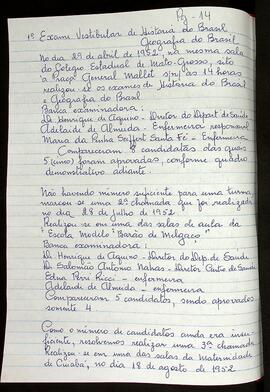 Pg - 14
1º Exame Vestibular de História do Brasil
Geografia do Brasil
No dia 29 de abril de 1952, na mesma sala
do Colégio Estadual de Mato-Grosso, sito
a Praça General Mallet s/nº as 14 horas
realizou se os exames de História do Brasil
e Geografia do Brasil
Banca examinadora:
Dr Henrique de Aquino - Diretor do Depart de Saúde
Adelaide de Almeida - Enfermeira
Maria da Cunha Saffort Santa Fé - Enfermeira
Compareceram 8 candidatos das quais
5 (cinco) foram aprovadas, conforme quadro
demonstrativo adiante.
Não havendo número suficiente para uma turma
marcou se uma 2ª chamada que foi realizada
no dia 28 de julho de 1952.
Realizou se em uma das salas de aula da
"Escola Modelo Barão de Melgaço"
Banca examinadora:
Dr Henrique de Aquino - Diretor do Dep. de Saúde
Dr Salomão Antonio Nahas - Diretor de Saúde
Edna Perri Ricci - enfermeira
Adelaide de Almeida - enfermeira
Compareceram 5 candidatos, sendo aprovados
somente 4
Como o número de candidatos ainda era insu-
ficiente, resolvemos realizar uma 3ª chamada
Realizou se em uma das salas da Maternidade
de Cuiabá, no dia 18 de agosto de 1952